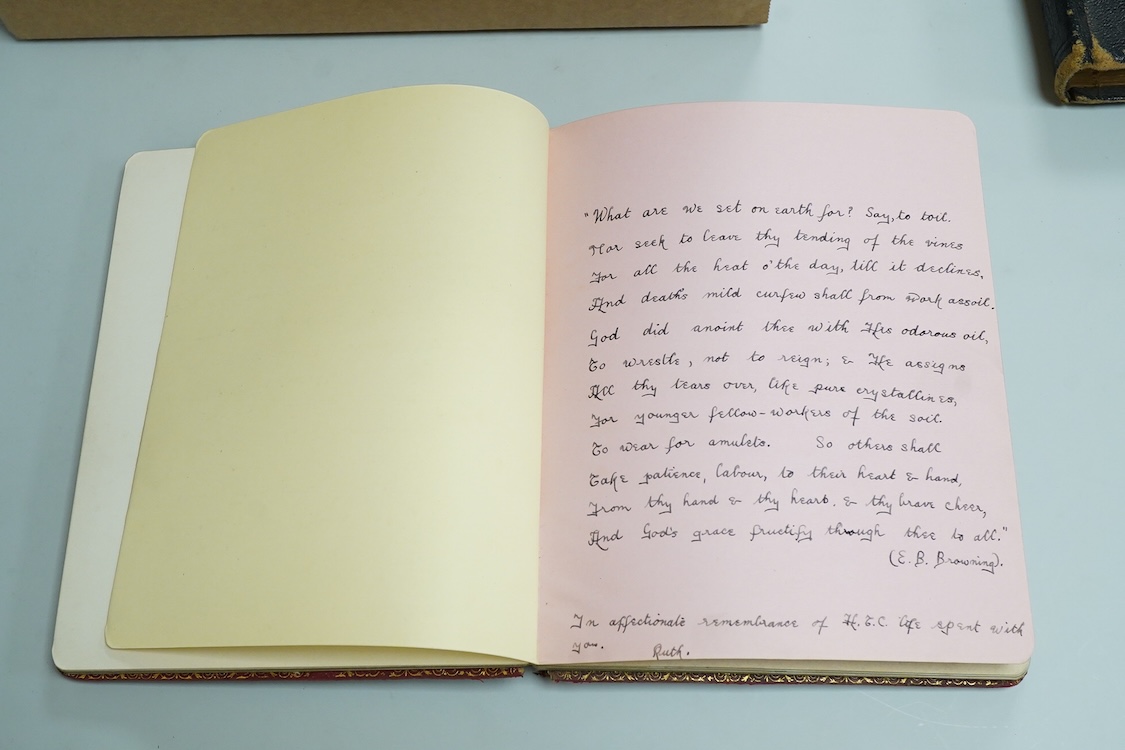 "What are we set on earth for? Say, to toil.
Nor seek to leave thy tending of the vines
For all the heat o' the day, till it declines,
And death's mild curfew shall from work assoil.
God did anoint thee with His odorous oil,
To wrestle, not to reign; & He assigns
All thy tears over, like pure crystallines,
For younger fellow-workers of the soil.
To wear for amulets. So others shall
Take patience, labour, to their heart & hand,
From thy hand & thy heart. & thy brave cheer,
And God's grace fructify through thee to all."
(E. B. Browning).
In affectionate remembrance of H.T.C. life spent with
you. Ruth.